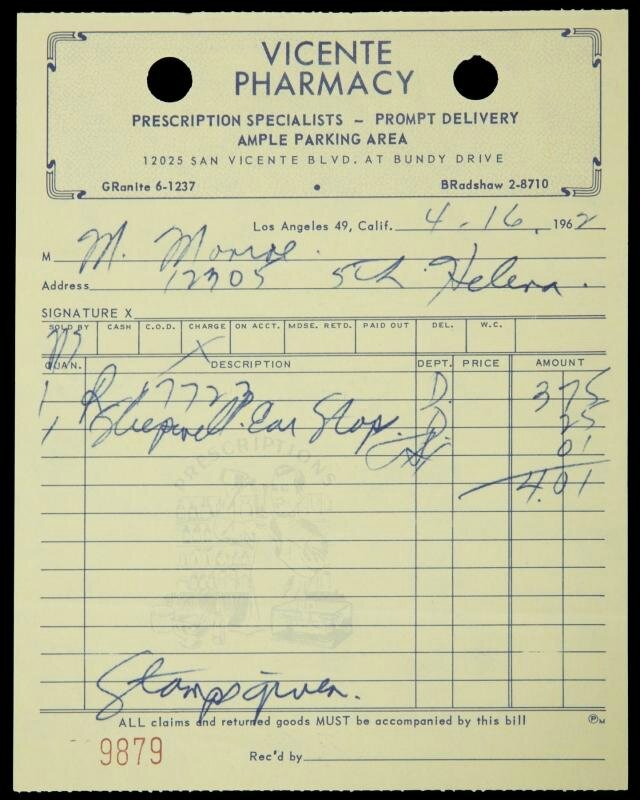 VICENTE
PHARMACY
PRESCRIPTION SPECIALISTS – PROMPT DELIVERY
AMPLE PARKING AREA
12025 SAN VICENTE BLVD. AT BUNDY DRIVE
GRanite 6-1237 • BRadshaw 2-8710
Los Angeles 49, Calif. 4-16, 1962
M M. Monroe.
Address 12305 5th Helena.
SIGNATURE X
SOLD BY CASH C.O.D. CHARGE ON ACCT. MDSE. RETD. PAID OUT DEL. W.C.
X
QUAN. DESCRIPTION DEPT. PRICE AMOUNT
1 Rx 17723 D. 3 75
1 Sleepwell Ear Stop. D. 25
01
4.01
PRESCRIPTIONS
Stamps given.
ALL claims and returned goods MUST be accompanied by this bill PM
9879
Rec'd by